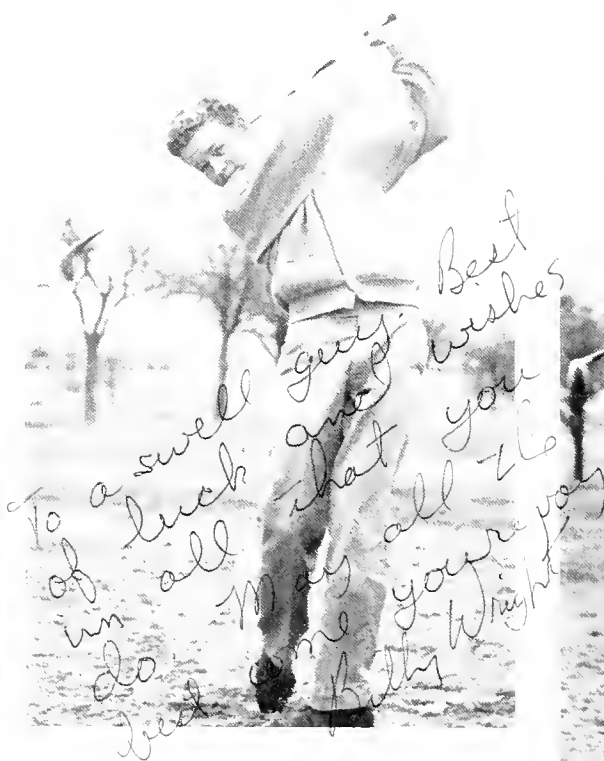 To a swell guy. Best
of luck and wishes
in all that you
do. May all the
best come your way
Billy Wright